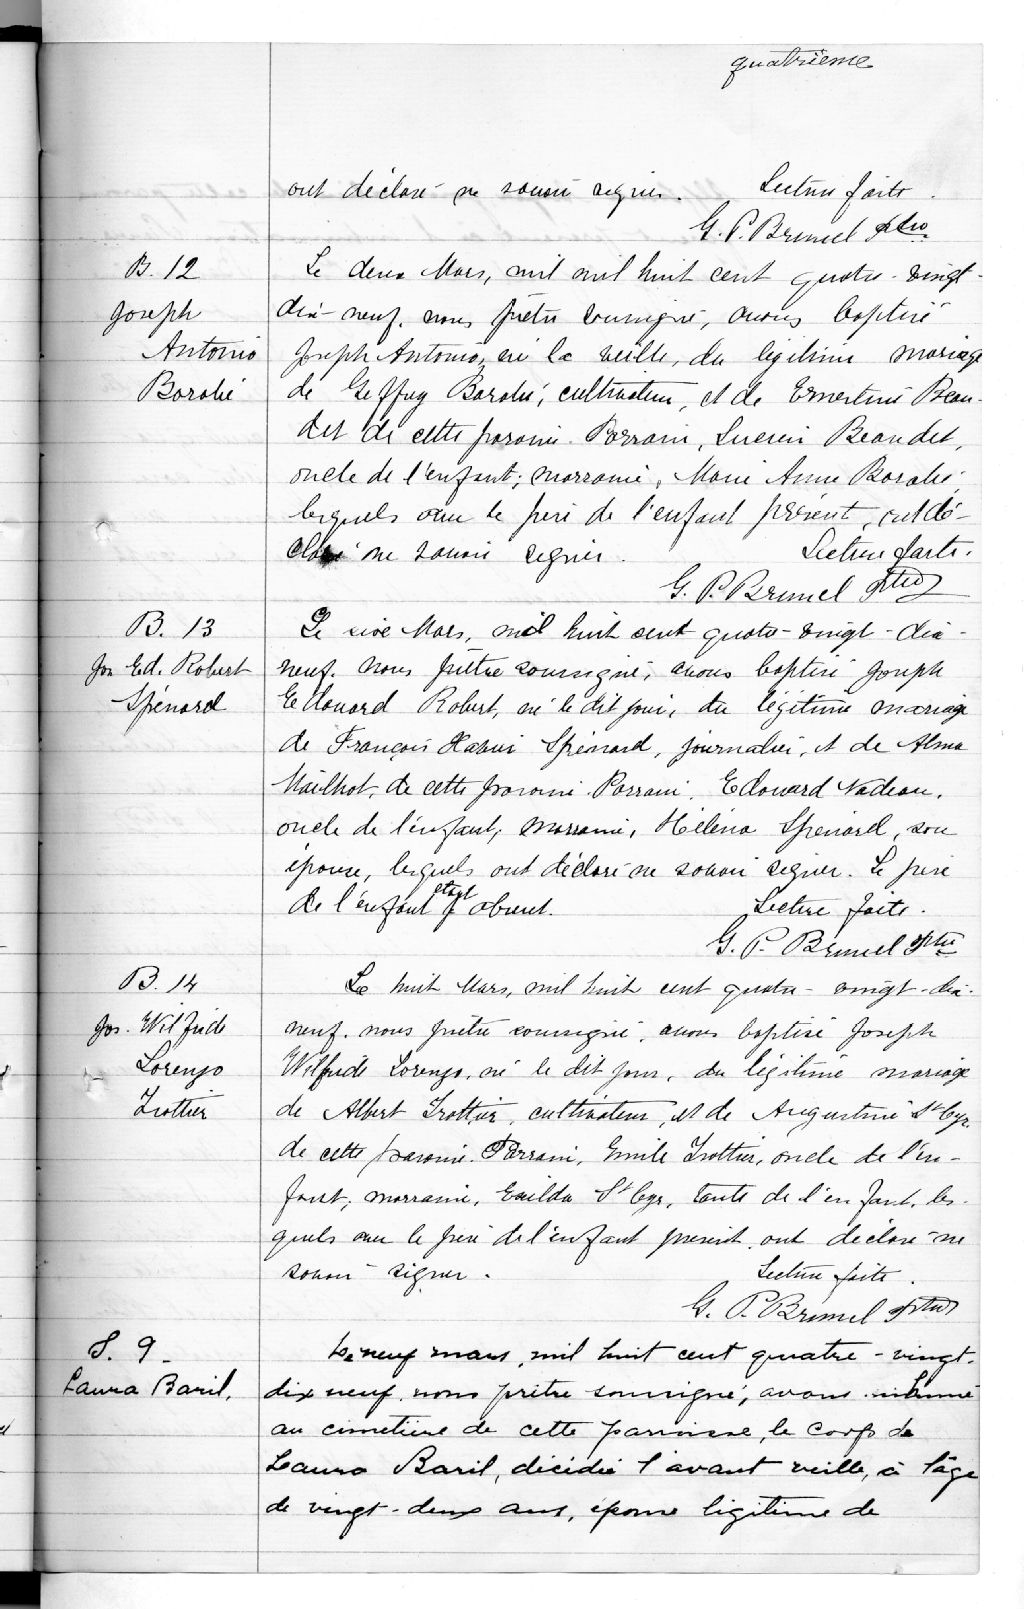 quatrième
ont déclaré ne savoir signer. Lecture faite.
G. P. Brunel Ptre
B. 12
Joseph
Antonio
Barabé
Le deux Mars, mil mil huit cent quatre-vingt-
dix-neuf, nous prêtre soussigné, avons baptisé
Joseph Antonio, né la veille, du légitime mariage
de Geffrey Barabé, cultivateur, et de Ernestine Beau-
det de cette paroisse. Parrain, Lucien Beaudet,
oncle de l'enfant; marraine, Marie Anne Barabé,
lesquels avec le père de l'enfant présent, ont dé-
claré ne savoir signer. Lecture faite.
G. P. Brunel Ptre
B. 13
Jos Ed. Robert
Spénard
Le six Mars, mil huit cent quatre-vingt-dix-
neuf, nous prêtre soussigné, avons baptisé Joseph
Edouard Robert, né le dit jour, du légitime mariage
de François Xavier Spénard, journalier, et de Alma
Mailhot, de cette paroisse. Parrain, Edouard Nadeau,
oncle de l'enfant, marraine, Héléna Spénard, son
épouse, lesquels ont déclaré ne savoir signer. Le père
de l'enfant étant absent. Lecture faite.
G. P. Brunel Ptre
B. 14
Jos. Wilfride
Lorenzo
Trottier
Le huit Mars, mil huit cent quatre-vingt-dix-
neuf, nous prêtre soussigné, avons baptisé Joseph
Wilfride Lorenzo, né le dit jour, du légitime mariage
de Albert Trottier, cultivateur, et de Augustine St Cyr,
de cette paroisse. Parrain, Emile Trottier, oncle de l'en-
fant; marraine, St Cyr, tante de l'enfant, les-
quels avec le père de l'enfant présent, ont déclaré ne
savoir signer. Lecture faite.
G. P. Brunel Ptre
S. 9
Laura Baril,
Le neuf mars, mil huit cent quatre-vingt-
dix neuf, nous prêtre soussigné, avons inhumé
au cimetière de cette paroisse, le corps de
Laura Baril, décédée l'avant veille, à l'âge
de vingt-deux ans, épouse légitime de